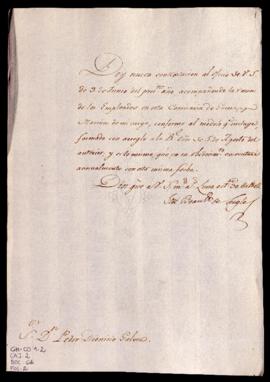 Doy nueva contestacion al oficio de V.S.
de 3 de Junio del pres.te año acompañando la razon
de los Empleados en esta Comisaria de Guerra y
Marina de mi cargo, conforme al modelo q.e incluye
formado con arreglo a la R.l Orn de 5 de Agosto del
anterior, y es lo mismo que en su obedecim.to executaré
anualmente con esta misma fecha.
Dios gue a V.S. m.s a.s Lima
S.r D.n Pedro Dionicio Galvez
GM-CO 1-2
CAJ. 2
DOC. 68
FOL. 2